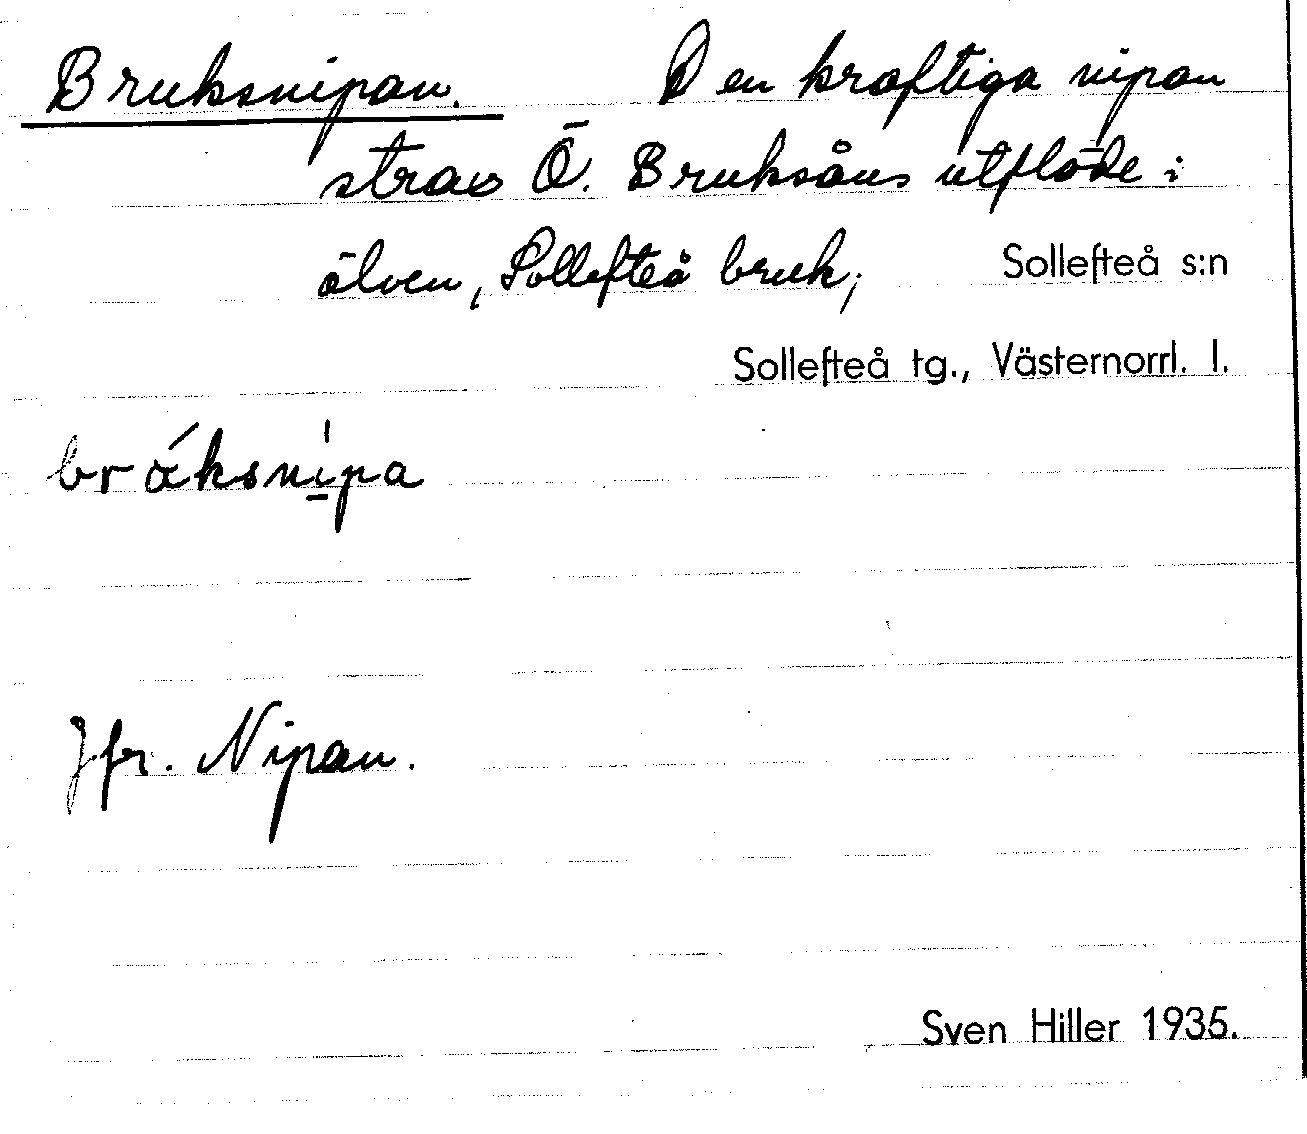 Bruksnipan. Den kraftiga nipan
strax Ö. Bruksåns utflöde i
älven, Sollefteå bruk; Sollefteå s:n
Sollefteå tg., Västernorrl. l.
bráksnipa
Jfr. Nipan.
Sven Hiller 1935.